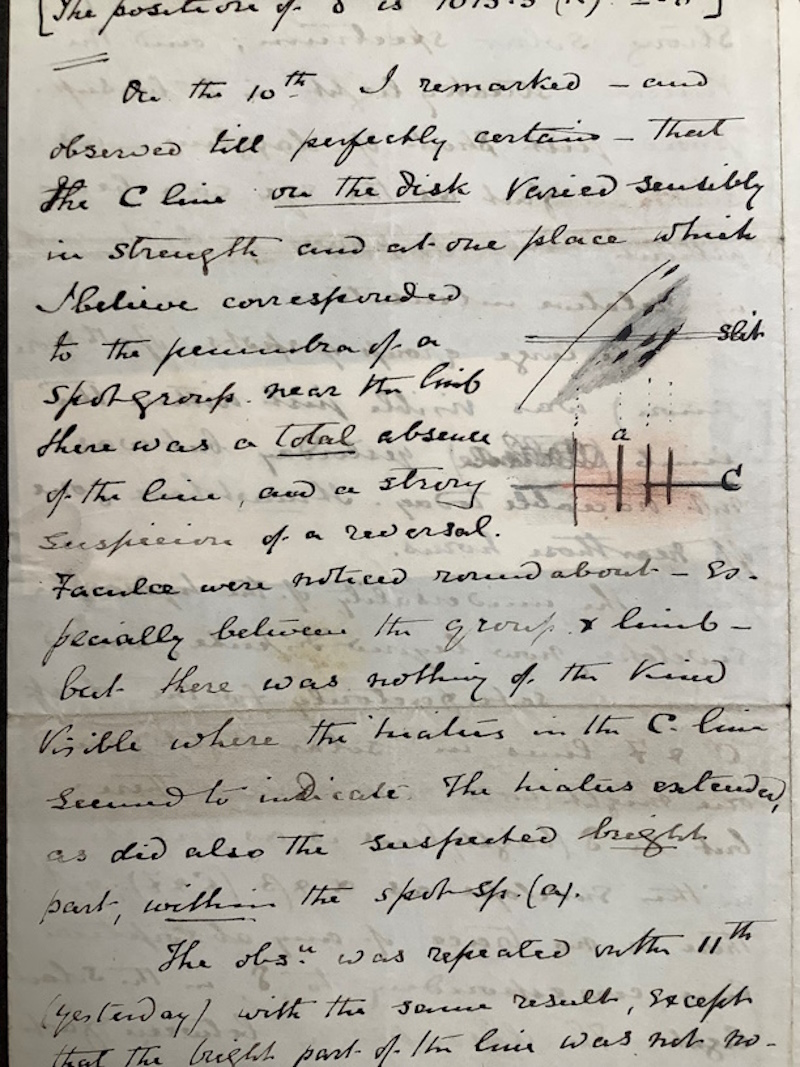 [The position of δ is 1013.5 (K)
On the 10th I remarked – and
observed till perfectly certain – that
the C line on the disk varied sensibly
in strength and at one place which
I believe corresponded
to the penumbra of a
spot group near the limb
there was a total absence
of the line, and a strong
suspicion of a reversal.
Slit
a
C
Faculæ were noticed round about – es-
pecially between the group & limb –
but there was nothing of the kind
visible where the hiatus in the C line
seemed to indicate. The hiatus extended,
as did also the suspected bright
part, within the spot sp. (a).
The obsn was repeated on the 11th
(yesterday) with the same result, except
that the bright part of the line was not no-